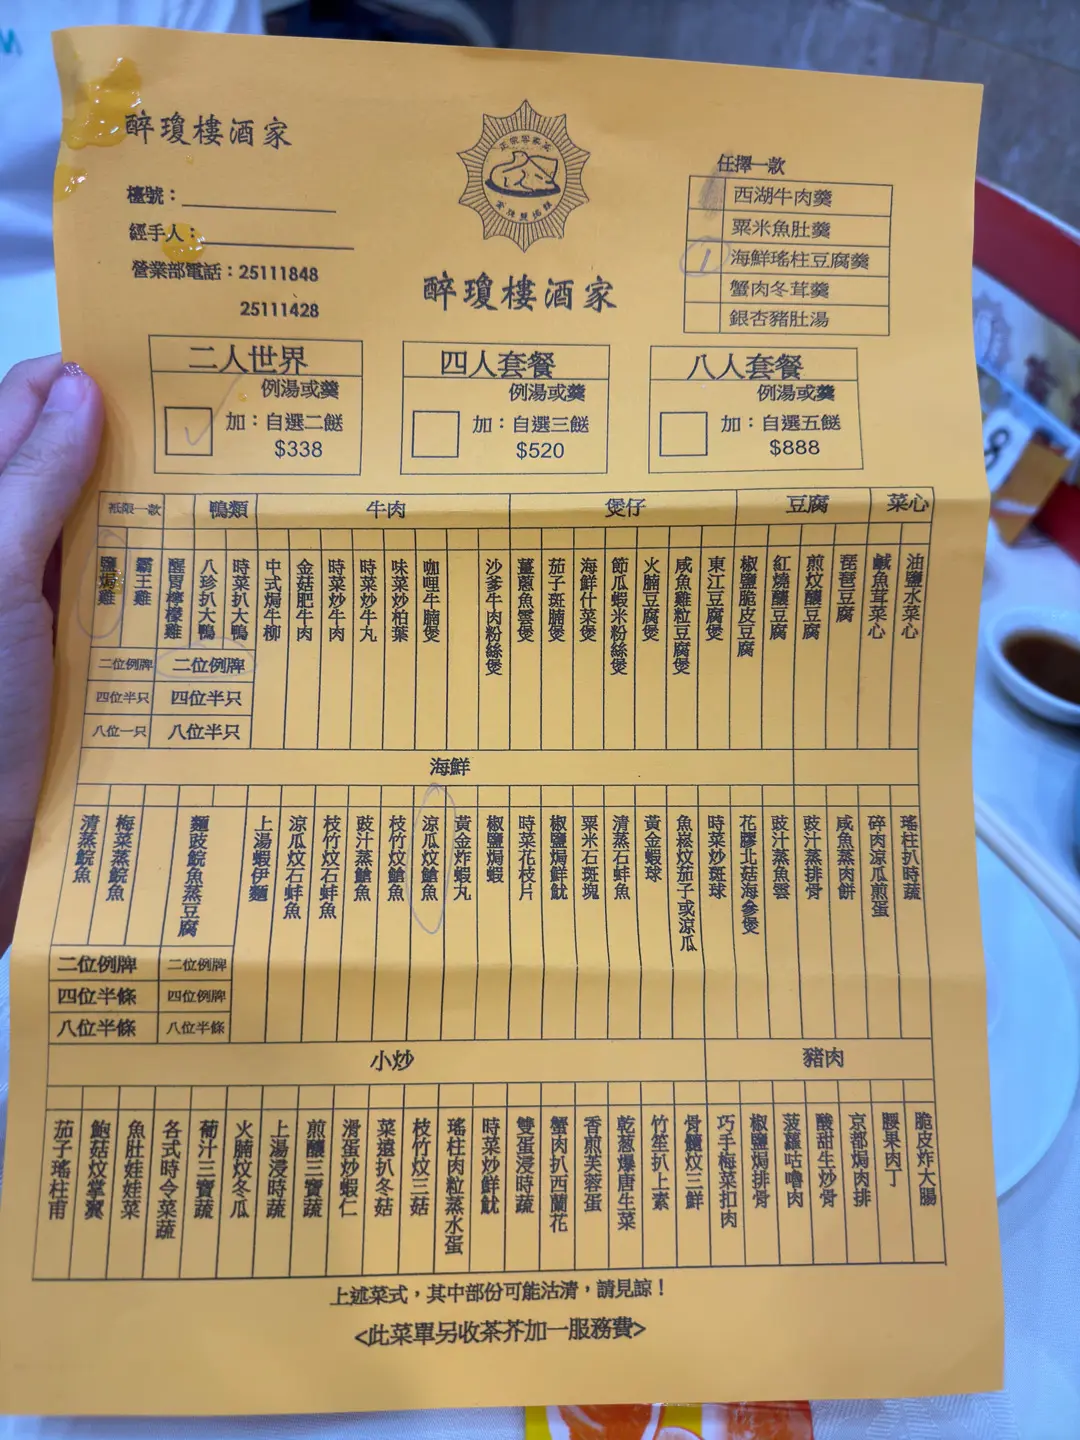 醉瓊樓酒家
檯號：
經手人：
營業部電話：25111848
25111428
正宗客家菜
醉瓊樓酒家
任擇一款
西湖牛肉羹
粟米魚肚羹
1 海鮮瑤柱豆腐羹
蟹肉冬茸羹
銀杏豬肚湯
二人世界
例湯或羹
加：自選二餸
$338
四人套餐
例湯或羹
加：自選三餸
$520
八人套餐
例湯或羹
加：自選五餸
$888
祗限一款
鴨類
牛肉
煲仔
豆腐
菜心
鹽焗雞
霸王雞
醒胃檸檬雞
八珍扒大鴨
時菜扒大鴨
中式焗牛柳
金菇肥牛肉
時菜炒牛肉
時菜炒牛丸
味菜炒柏葉
咖哩牛腩煲
沙爹牛肉粉絲煲
薑蔥魚雲煲
茄子斑腩煲
海鮮什菜煲
節瓜蝦米粉絲煲
火腩豆腐煲
咸魚雞粒豆腐煲
東江豆腐煲
椒鹽脆皮豆腐
紅燒釀豆腐
煎炆釀豆腐
琵琶豆腐
鹹魚茸菜心
油鹽水菜心
二位例牌 二位例牌
四位半只 四位半只
八位一只 八位半只
海鮮
清蒸鯇魚
梅菜蒸鯇魚
麵豉鯇魚蒸豆腐
上湯蝦伊麵
涼瓜炆石蚌魚
枝竹炆石蚌魚
豉汁蒸鯧魚
枝竹炆鯧魚
涼瓜炆鯧魚
黃金炸蝦丸
椒鹽焗蝦
時菜花枝片
椒鹽焗鮮魷
粟米石斑塊
清蒸石蚌魚
黃金蝦球
魚崧炆茄子或涼瓜
時菜炒斑球
花膠北菇海參煲
豉汁蒸魚雲
豉汁蒸排骨
咸魚蒸肉餅
碎肉涼瓜煎蛋
瑤柱扒時蔬
二位例牌 二位例牌
四位半條 四位例牌
八位半條 八位半條
小炒
豬肉
茄子瑤柱甫
鮑菇炆掌翼
魚肚娃娃菜
各式時令菜蔬
葡汁三寶蔬
火腩炆冬瓜
上湯浸時蔬
煎釀三寶蔬
滑蛋炒蝦仁
菜遠扒冬菇
枝竹炆三菇
瑤柱肉粒蒸水蛋
時菜炒鮮魷
雙蛋浸時蔬
蟹肉扒西蘭花
香煎芙蓉蛋
乾蔥爆唐生菜
竹笙扒上素
骨髓炆三鮮
巧手梅菜扣肉
椒鹽焗排骨
菠蘿咕嚕肉
酸甜生炒骨
京都焗肉排
腰果肉丁
脆皮炸大腸
上述菜式，其中部份可能沽清，請見諒！
<此菜單另收茶芥加一服務費>
8